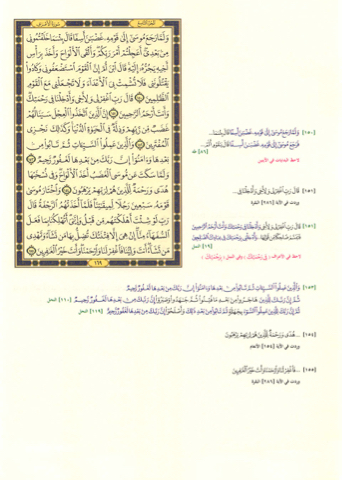 الجزء التاسع
سورة الأعراف
وَلَمَّا رَجَعَ مُوسَىٰ إِلَىٰ قَوْمِهِ غَضْبَٰنَ أَسِفًا قَالَ بِئْسَمَا خَلَفْتُمُونِى
مِنۢ بَعْدِىٓ أَعَجِلْتُمْ أَمْرَ رَبِّكُمْ وَأَلْقَى ٱلْأَلْوَاحَ وَأَخَذَ بِرَأْسِ
أَخِيهِ يَجُرُّهُۥٓ إِلَيْهِ قَالَ ٱبْنَ أُمَّ إِنَّ ٱلْقَوْمَ ٱسْتَضْعَفُونِى وَكَادُوا۟
يَقْتُلُونَنِى فَلَا تُشْمِتْ بِىَ ٱلْأَعْدَآءَ وَلَا تَجْعَلْنِى مَعَ ٱلْقَوْمِ
ٱلظَّٰلِمِينَ ١٥٠ قَالَ رَبِّ ٱغْفِرْ لِى وَلِأَخِى وَأَدْخِلْنَا فِى رَحْمَتِكَ
وَأَنتَ أَرْحَمُ ٱلرَّٰحِمِينَ ١٥١ إِنَّ ٱلَّذِينَ ٱتَّخَذُوا۟ ٱلْعِجْلَ سَيَنَالُهُمْ
غَضَبٌ مِّن رَّبِّهِمْ وَذِلَّةٌ فِى ٱلْحَيَوٰةِ ٱلدُّنْيَا وَكَذَٰلِكَ نَجْزِى
ٱلْمُفْتَرِينَ ١٥٢ وَٱلَّذِينَ عَمِلُوا۟ ٱلسَّيِّـَٔاتِ ثُمَّ تَابُوا۟ مِنۢ
بَعْدِهَا وَءَامَنُوٓا۟ إِنَّ رَبَّكَ مِنۢ بَعْدِهَا لَغَفُورٌ رَّحِيمٌ ١٥٣
وَلَمَّا سَكَتَ عَن مُّوسَى ٱلْغَضَبُ أَخَذَ ٱلْأَلْوَاحَ وَفِى نُسْخَتِهَا
هُدًى وَرَحْمَةٌ لِّلَّذِينَ هُمْ لِرَبِّهِمْ يَرْهَبُونَ ١٥٤ وَٱخْتَارَ مُوسَىٰ
قَوْمَهُۥ سَبْعِينَ رَجُلًا لِّمِيقَٰتِنَا فَلَمَّآ أَخَذَتْهُمُ ٱلرَّجْفَةُ قَالَ
رَبِّ لَوْ شِئْتَ أَهْلَكْتَهُم مِّن قَبْلُ وَإِيَّٰىَ أَتُهْلِكُنَا بِمَا فَعَلَ
ٱلسُّفَهَآءُ مِنَّآ إِنْ هِىَ إِلَّا فِتْنَتُكَ تُضِلُّ بِهَا مَن تَشَآءُ وَتَهْدِى
مَن تَشَآءُ أَنتَ وَلِيُّنَا فَٱغْفِرْ لَنَا وَٱرْحَمْنَا وَأَنتَ خَيْرُ ٱلْغَٰفِرِينَ ١٥٥
١٦٩
[١٥٠] وَلَمَّا رَجَعَ مُوسَىٰ إِلَىٰ قَوْمِهِ غَضْبَٰنَ أَسِفًا قَالَ بِئْسَمَا...
فَرَجَعَ مُوسَىٰ إِلَىٰ قَوْمِهِ غَضْبَٰنَ أَسِفًا قَالَ يَٰقَوْمِ أَلَمْ...
[٨٦] طه
[١٥١] قَالَ رَبِّ ٱغْفِرْ لِى وَلِأَخِى وَأَدْخِلْنَا...
[١٥١] قَالَ رَبِّ ٱغْفِرْ لِى وَلِأَخِى وَأَدْخِلْنَا فِى رَحْمَتِكَ وَأَنتَ أَرْحَمُ ٱلرَّٰحِمِينَ
[١٩] النمل
[١٥٣] وَٱلَّذِينَ عَمِلُوا۟ ٱلسَّيِّـَٔاتِ ثُمَّ تَابُوا۟ مِنۢ بَعْدِهَا وَءَامَنُوٓا۟ إِنَّ رَبَّكَ مِنۢ بَعْدِهَا لَغَفُورٌ رَّحِيمٌ
ثُمَّ إِنَّ رَبَّكَ لِلَّذِينَ هَاجَرُوا۟ مِنۢ بَعْدِ مَا فُتِنُوا۟ ثُمَّ جَٰهَدُوا۟ وَصَبَرُوٓا۟ إِنَّ رَبَّكَ مِنۢ بَعْدِهَا لَغَفُورٌ رَّحِيمٌ [١١٠] النحل
ثُمَّ إِنَّ رَبَّكَ لِلَّذِينَ عَمِلُوا۟ ٱلسُّوٓءَ بِجَهَٰلَةٍ ثُمَّ تَابُوا۟ مِنۢ بَعْدِ ذَٰلِكَ وَأَصْلَحُوٓا۟ إِنَّ رَبَّكَ مِنۢ بَعْدِهَا لَغَفُورٌ رَّحِيمٌ [١١٩] النحل
[١٥٤] ...هُدًى وَرَحْمَةٌ لِّلَّذِينَ هُمْ لِرَبِّهِمْ يَرْهَبُونَ
وردت في الآية [١٥٤] الأنعام
[١٥٥] ...فَٱغْفِرْ لَنَا وَٱرْحَمْنَا وَأَنتَ خَيْرُ ٱلْغَٰفِرِينَ
وردت في الآية [٢٨٦] البقرة